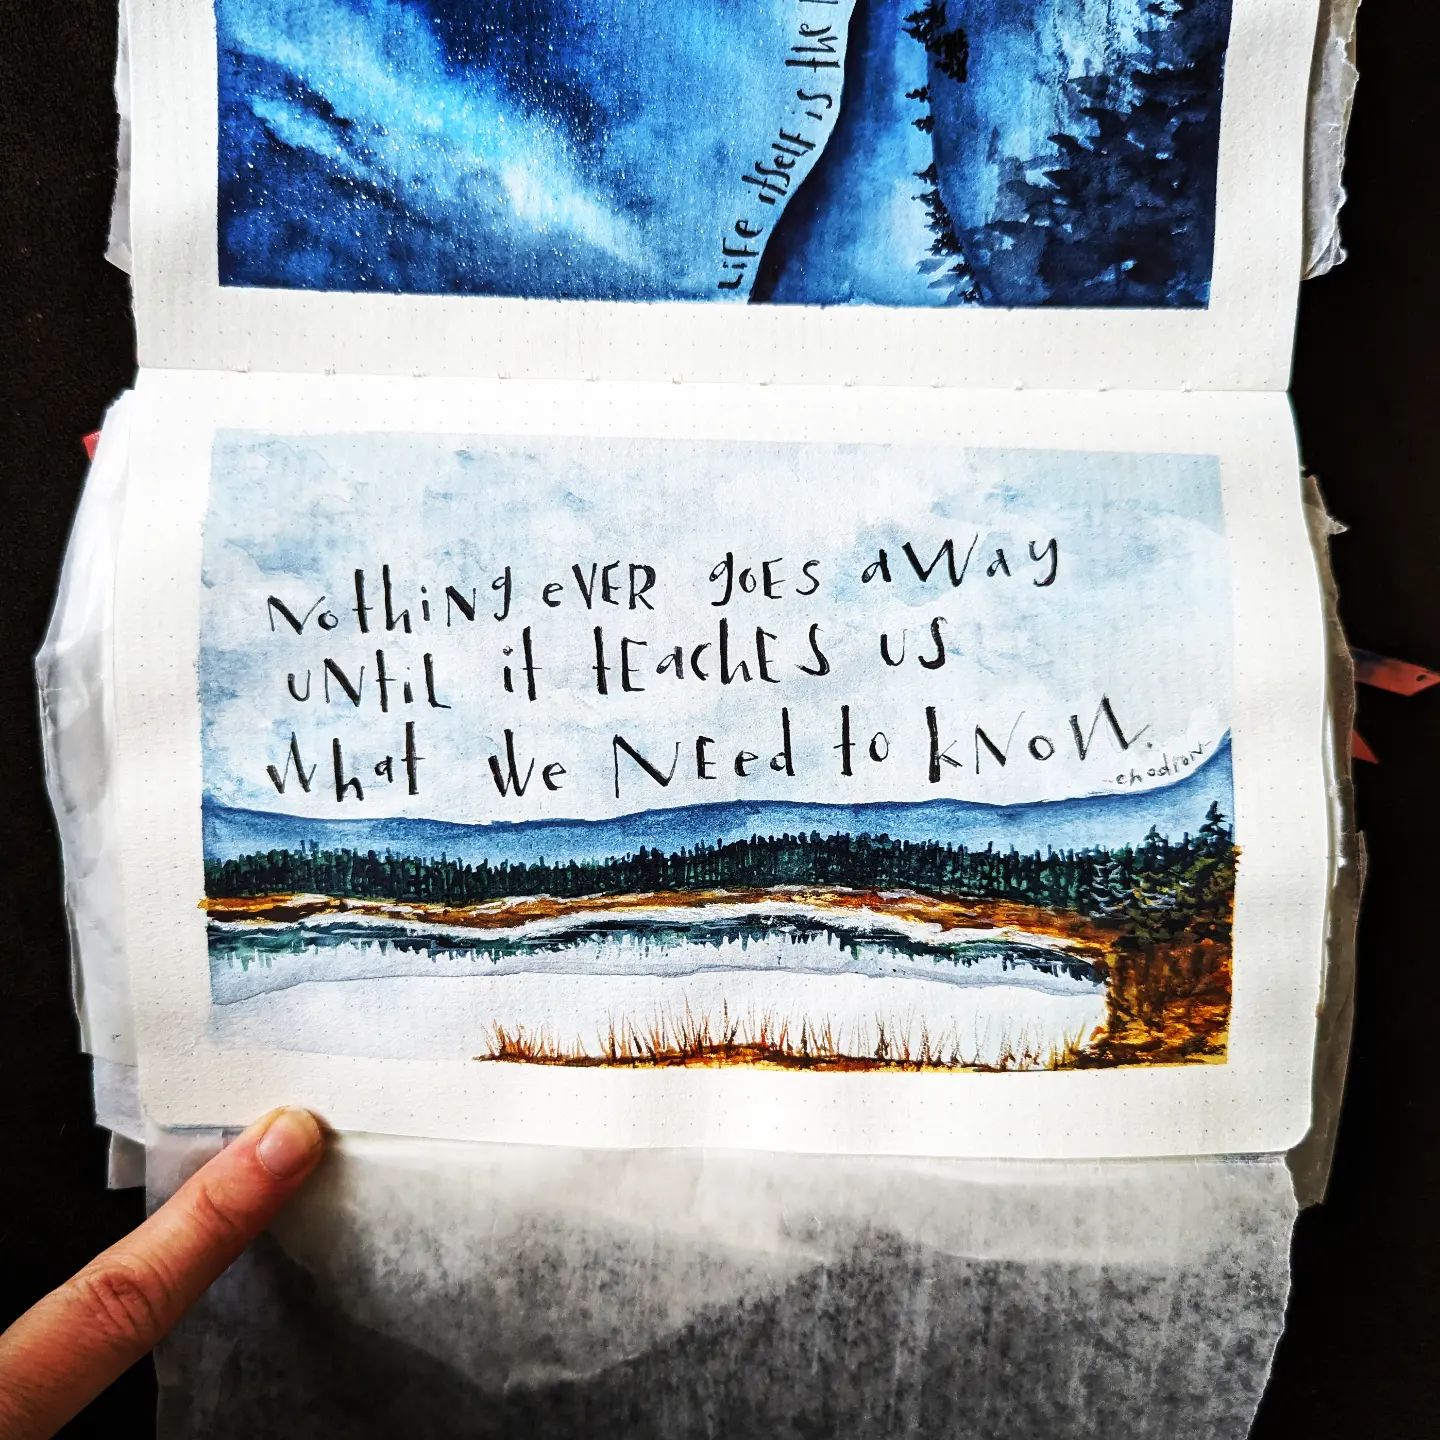 Life itself is the
Nothing ever goes away
until it teaches us
what we need to know.
-chodron-